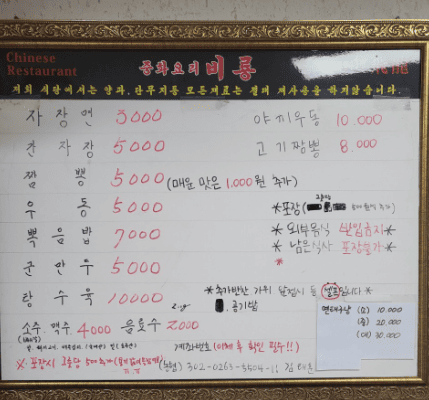 Chinese
Restaurant
중화요리 비룡
저희 식당에서는 양파, 단무지등 모든재료는 절대 재사용을 하지않습니다.
자장면 3000
간자장 5000
짬뽕 5000 (매운 맛은 1.000원 추가)
우동 5000
볶음밥 7000
군만두 5000
탕수육 10000
소주.맥주 4000 음료수 2000
야끼우동 10.000
고기짬뽕 8.000
*포장
*외부음식 반입금지*
*남은식사 포장불가*
*
*추가반찬 가위 앞접시 등 셀프입니다*
공기밥
계좌번호 (이체 후 확인 필수!!)
※.포장시 1호당 500추가
302-0263-5504-11 김
(소) 10.000
(중) 20.000
(대) 30.000